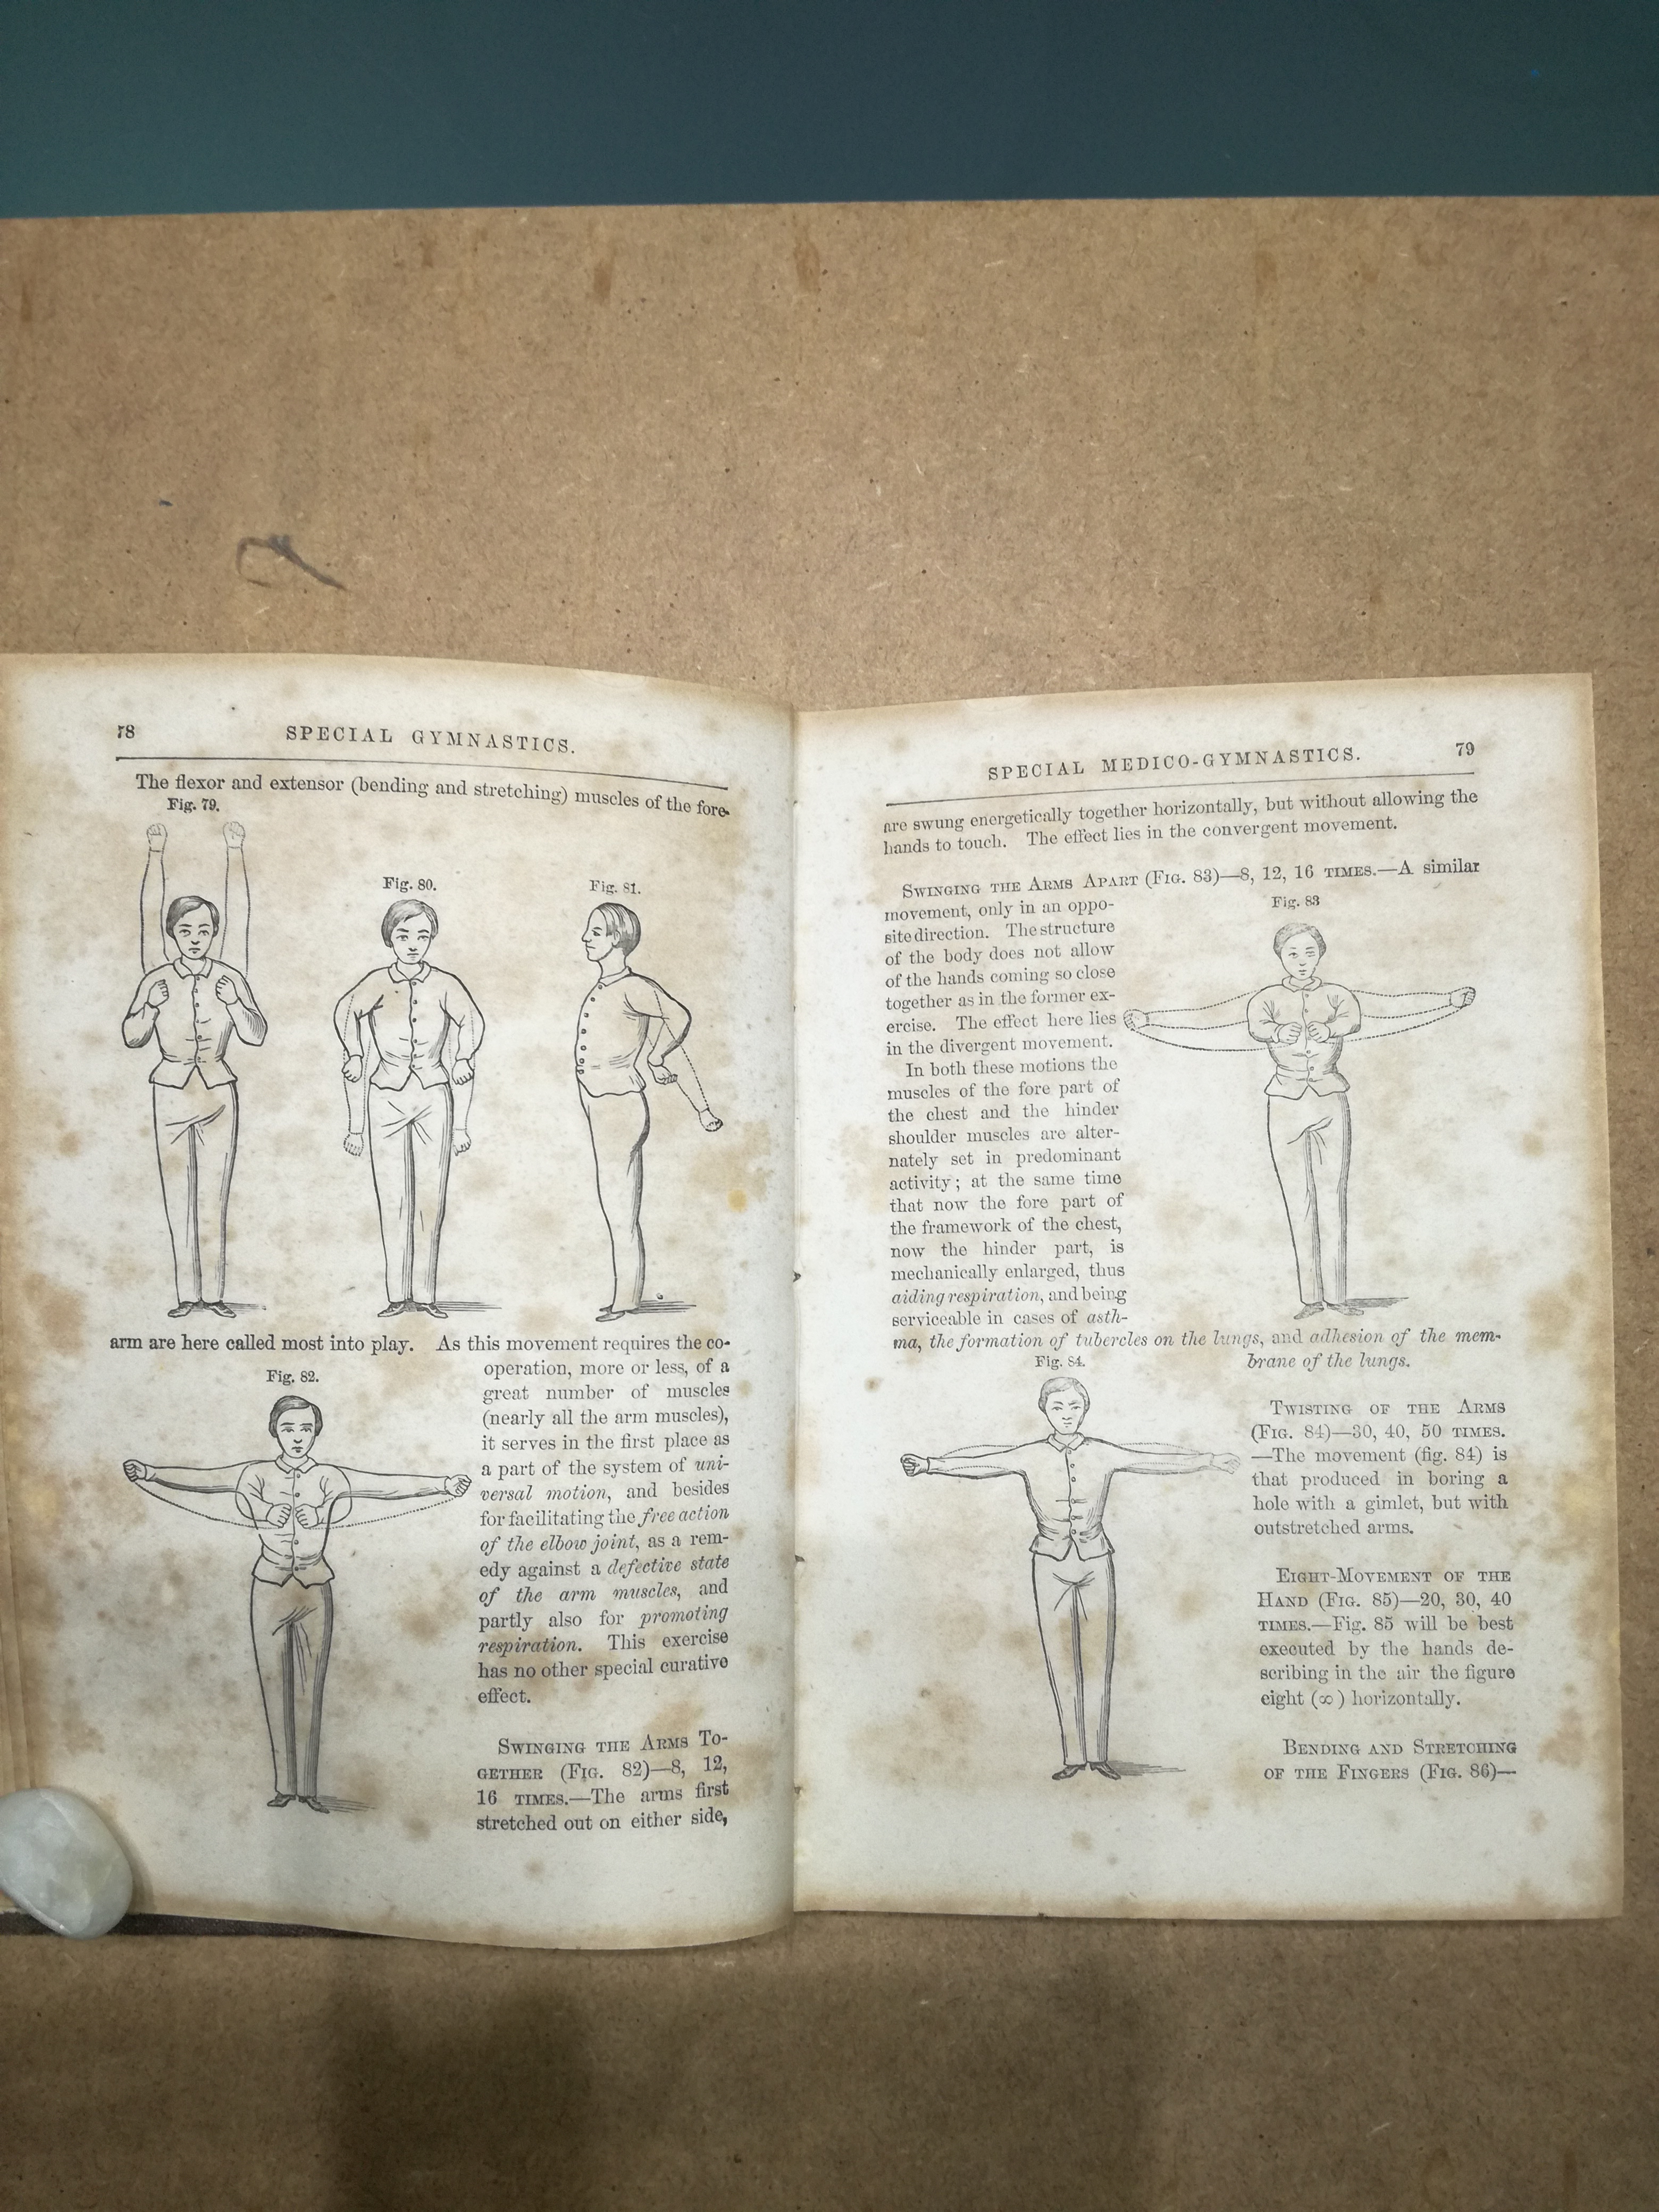 78
SPECIAL GYMNASTICS.
The flexor and extensor (bending and stretching) muscles of the fore-
Fig. 79.
Fig. 80.
Fig. 81.
arm are here called most into play. As this movement requires the co-
Fig. 82.
operation, more or less, of a
great number of muscles
(nearly all the arm muscles),
it serves in the first place as
a part of the system of uni-
versal motion, and besides
for facilitating the free action
of the elbow joint, as a rem-
edy against a defective state
of the arm muscles, and
partly also for promoting
respiration. This exercise
has no other special curative
effect.
SWINGING THE ARMS TO-
GETHER (FIG. 82)—8, 12,
16 TIMES.—The arms first
stretched out on either side,
SPECIAL MEDICO-GYMNASTICS.
79
are swung energetically together horizontally, but without allowing the
hands to touch. The effect lies in the convergent movement.
SWINGING THE ARMS APART (FIG. 83)—8, 12, 16 TIMES.—A similar
Fig. 83
movement, only in an oppo-
site direction. The structure
of the body does not allow
of the hands coming so close
together as in the former ex-
ercise. The effect here lies
in the divergent movement.
In both these motions the
muscles of the fore part of
the chest and the hinder
shoulder muscles are alter-
nately set in predominant
activity; at the same time
that now the fore part of
the framework of the chest,
now the hinder part, is
mechanically enlarged, thus
aiding respiration, and being
serviceable in cases of asth-
ma, the formation of tubercles on the lungs, and adhesion of the mem-
brane of the lungs.
Fig. 84.
TWISTING OF THE ARMS
(FIG. 84)—30, 40, 50 TIMES.
—The movement (fig. 84) is
that produced in boring a
hole with a gimlet, but with
outstretched arms.
EIGHT-MOVEMENT OF THE
HAND (FIG. 85)—20, 30, 40
TIMES.—Fig. 85 will be best
executed by the hands de-
scribing in the air the figure
eight (∞) horizontally.
BENDING AND STRETCHING
OF THE FINGERS (FIG. 86)—